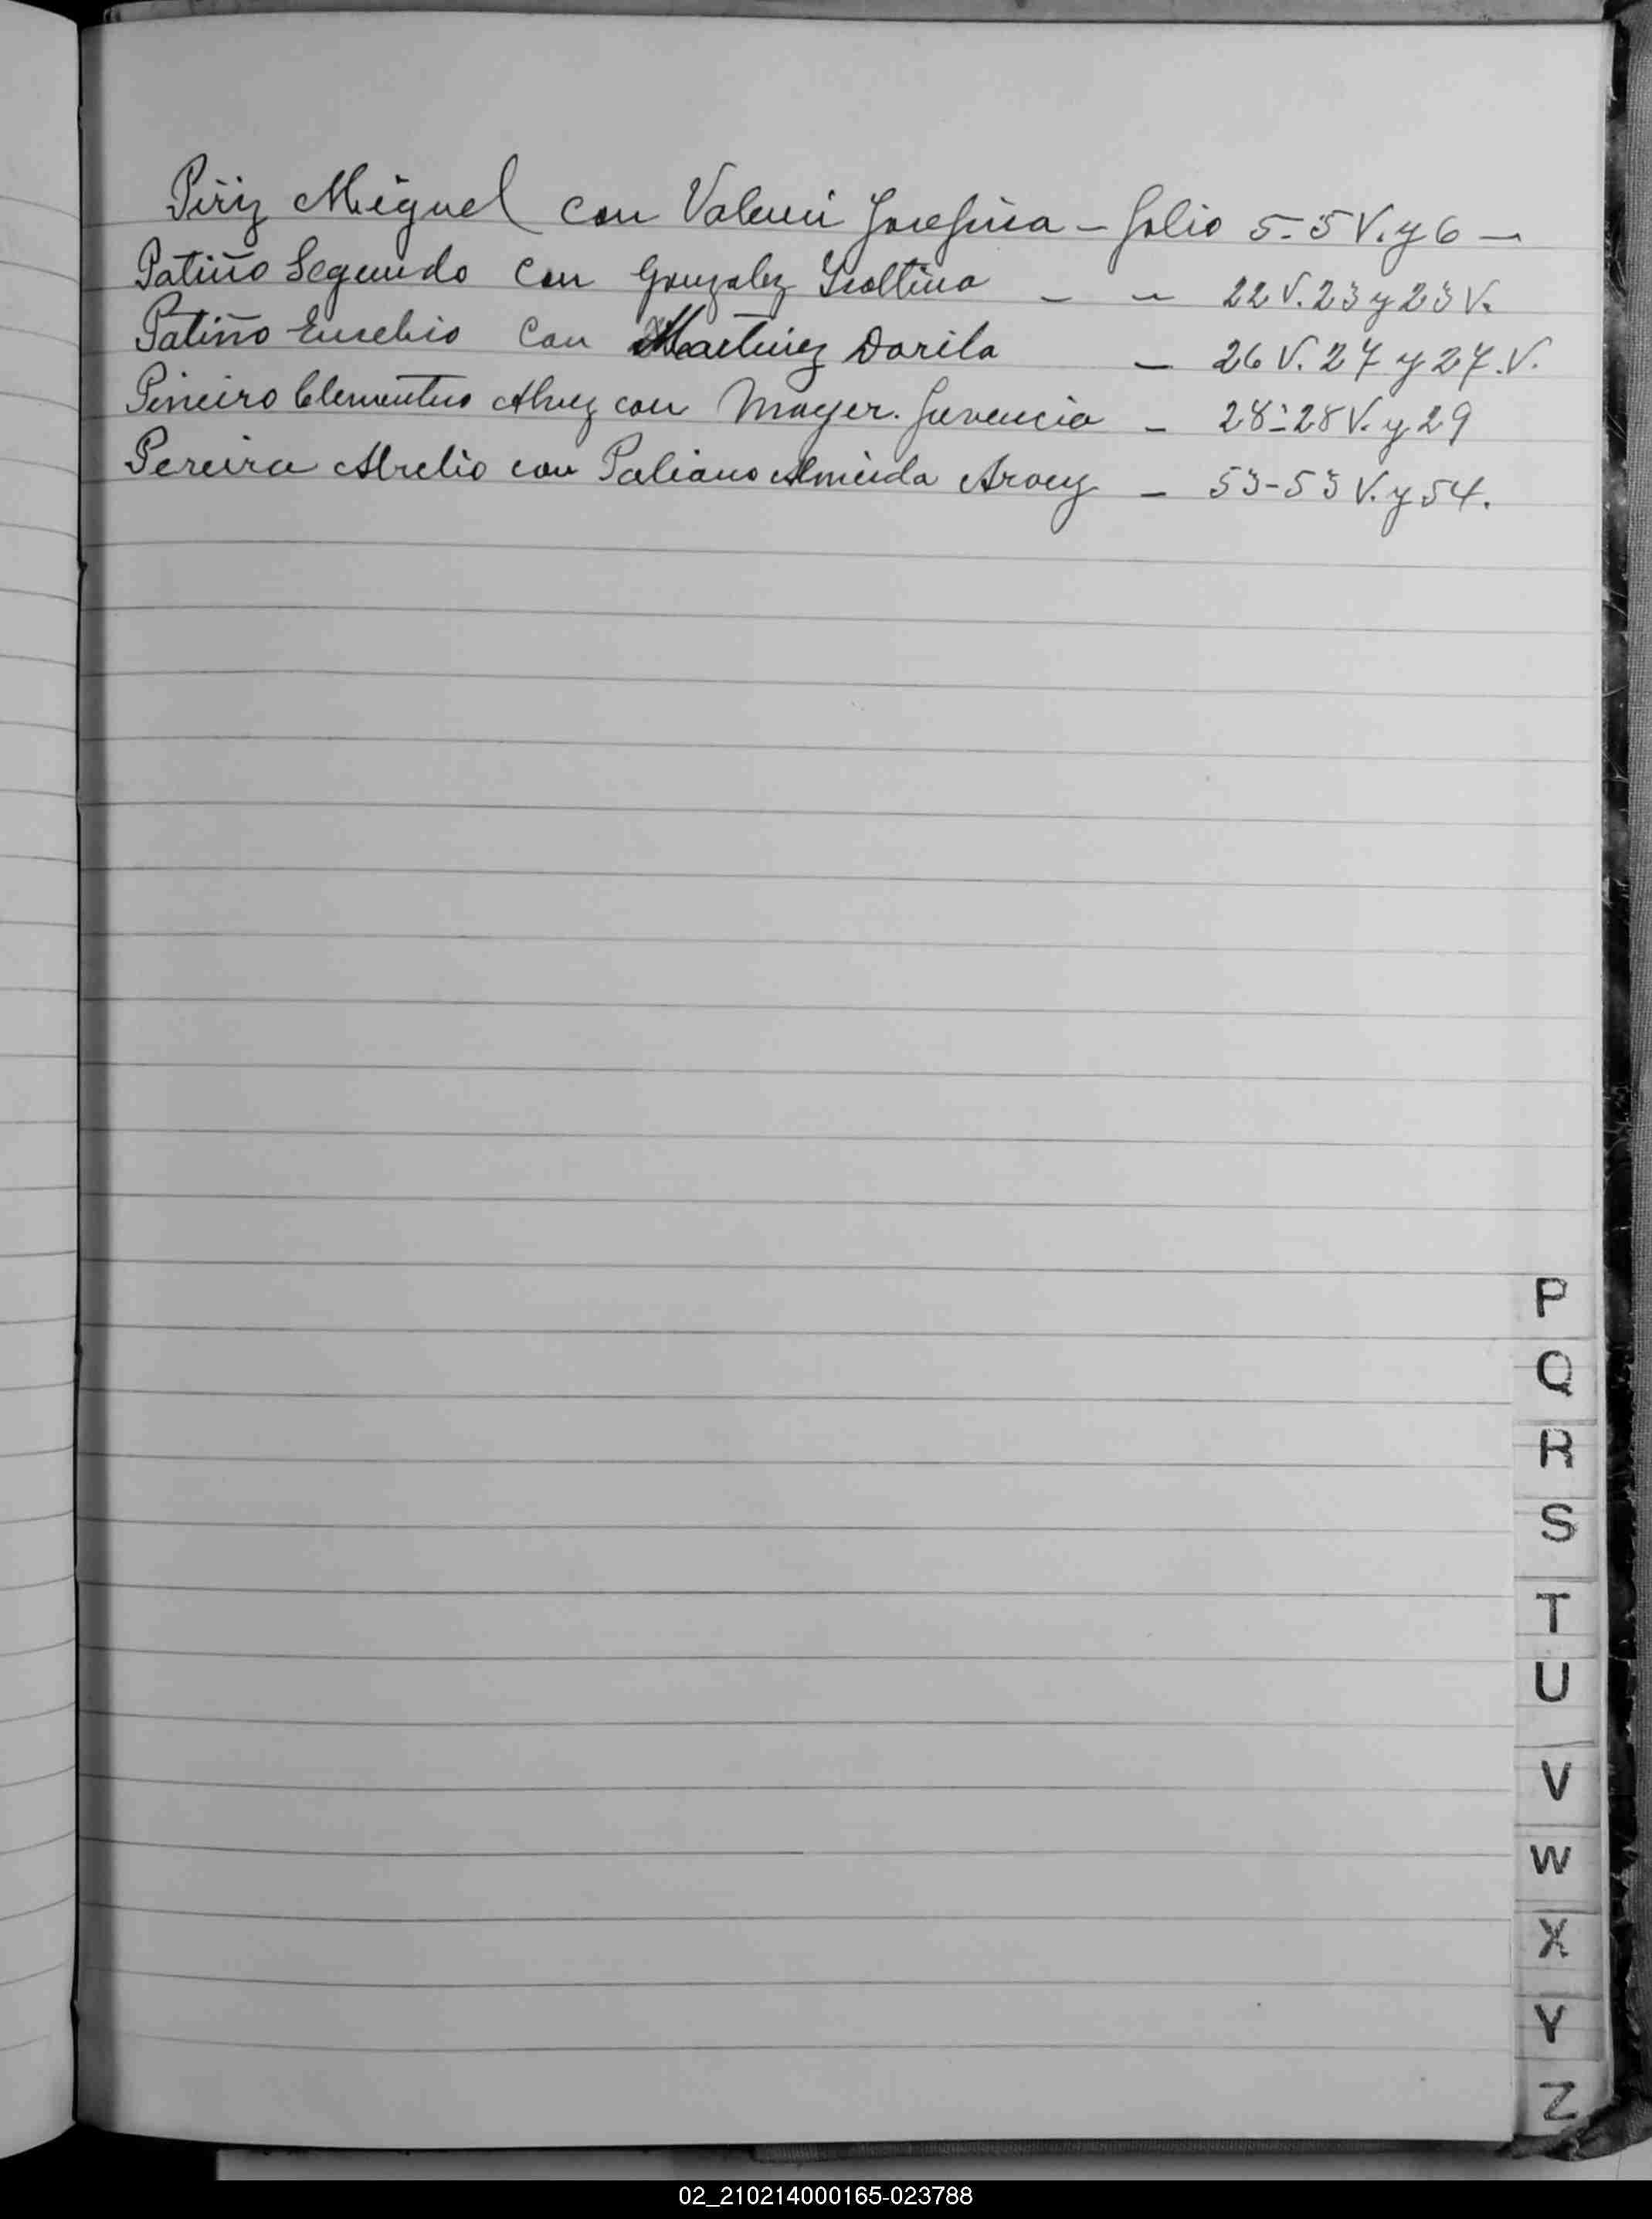 Piriz Miguel con Valeni Josefina - folio 5-5 V. y 6 -
Patiño Segundo con Gonzalez Isoltina - - 22 V. 23 y 23 V.
Patiño Eusebio con Martinez Dorila - 26 V. 27 y 27. V.
Pineiro Clementino Alvez con Mayer. Juvencia - 28-28 V. y 29
Pereira Abrelio con Paliano Almeida Aracy - 53-53 V. y 54.
P
Q
R
S
T
U
V
W
X
Y
Z
02_210214000165-023788